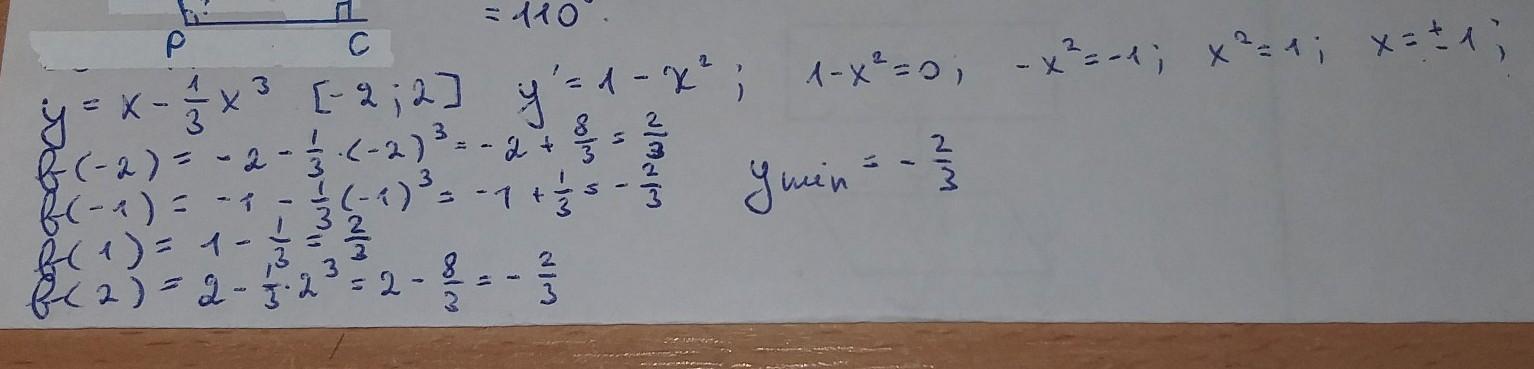 = 110°.
P C
y = x - 1/3 x³ [-2; 2] y' = 1 - x²; 1 - x² = 0; -x² = -1; x² = 1; x = ± 1;
f(-2) = -2 - 1/3 · (-2)³ = -2 + 8/3 = 2/3
f(-1) = -1 - 1/3 (-1)³ = -1 + 1/3 = -2/3 y min = -2/3
f(1) = 1 - 1/3 = 2/3
f(2) = 2 - 1/3 · 2³ = 2 - 8/3 = -2/3